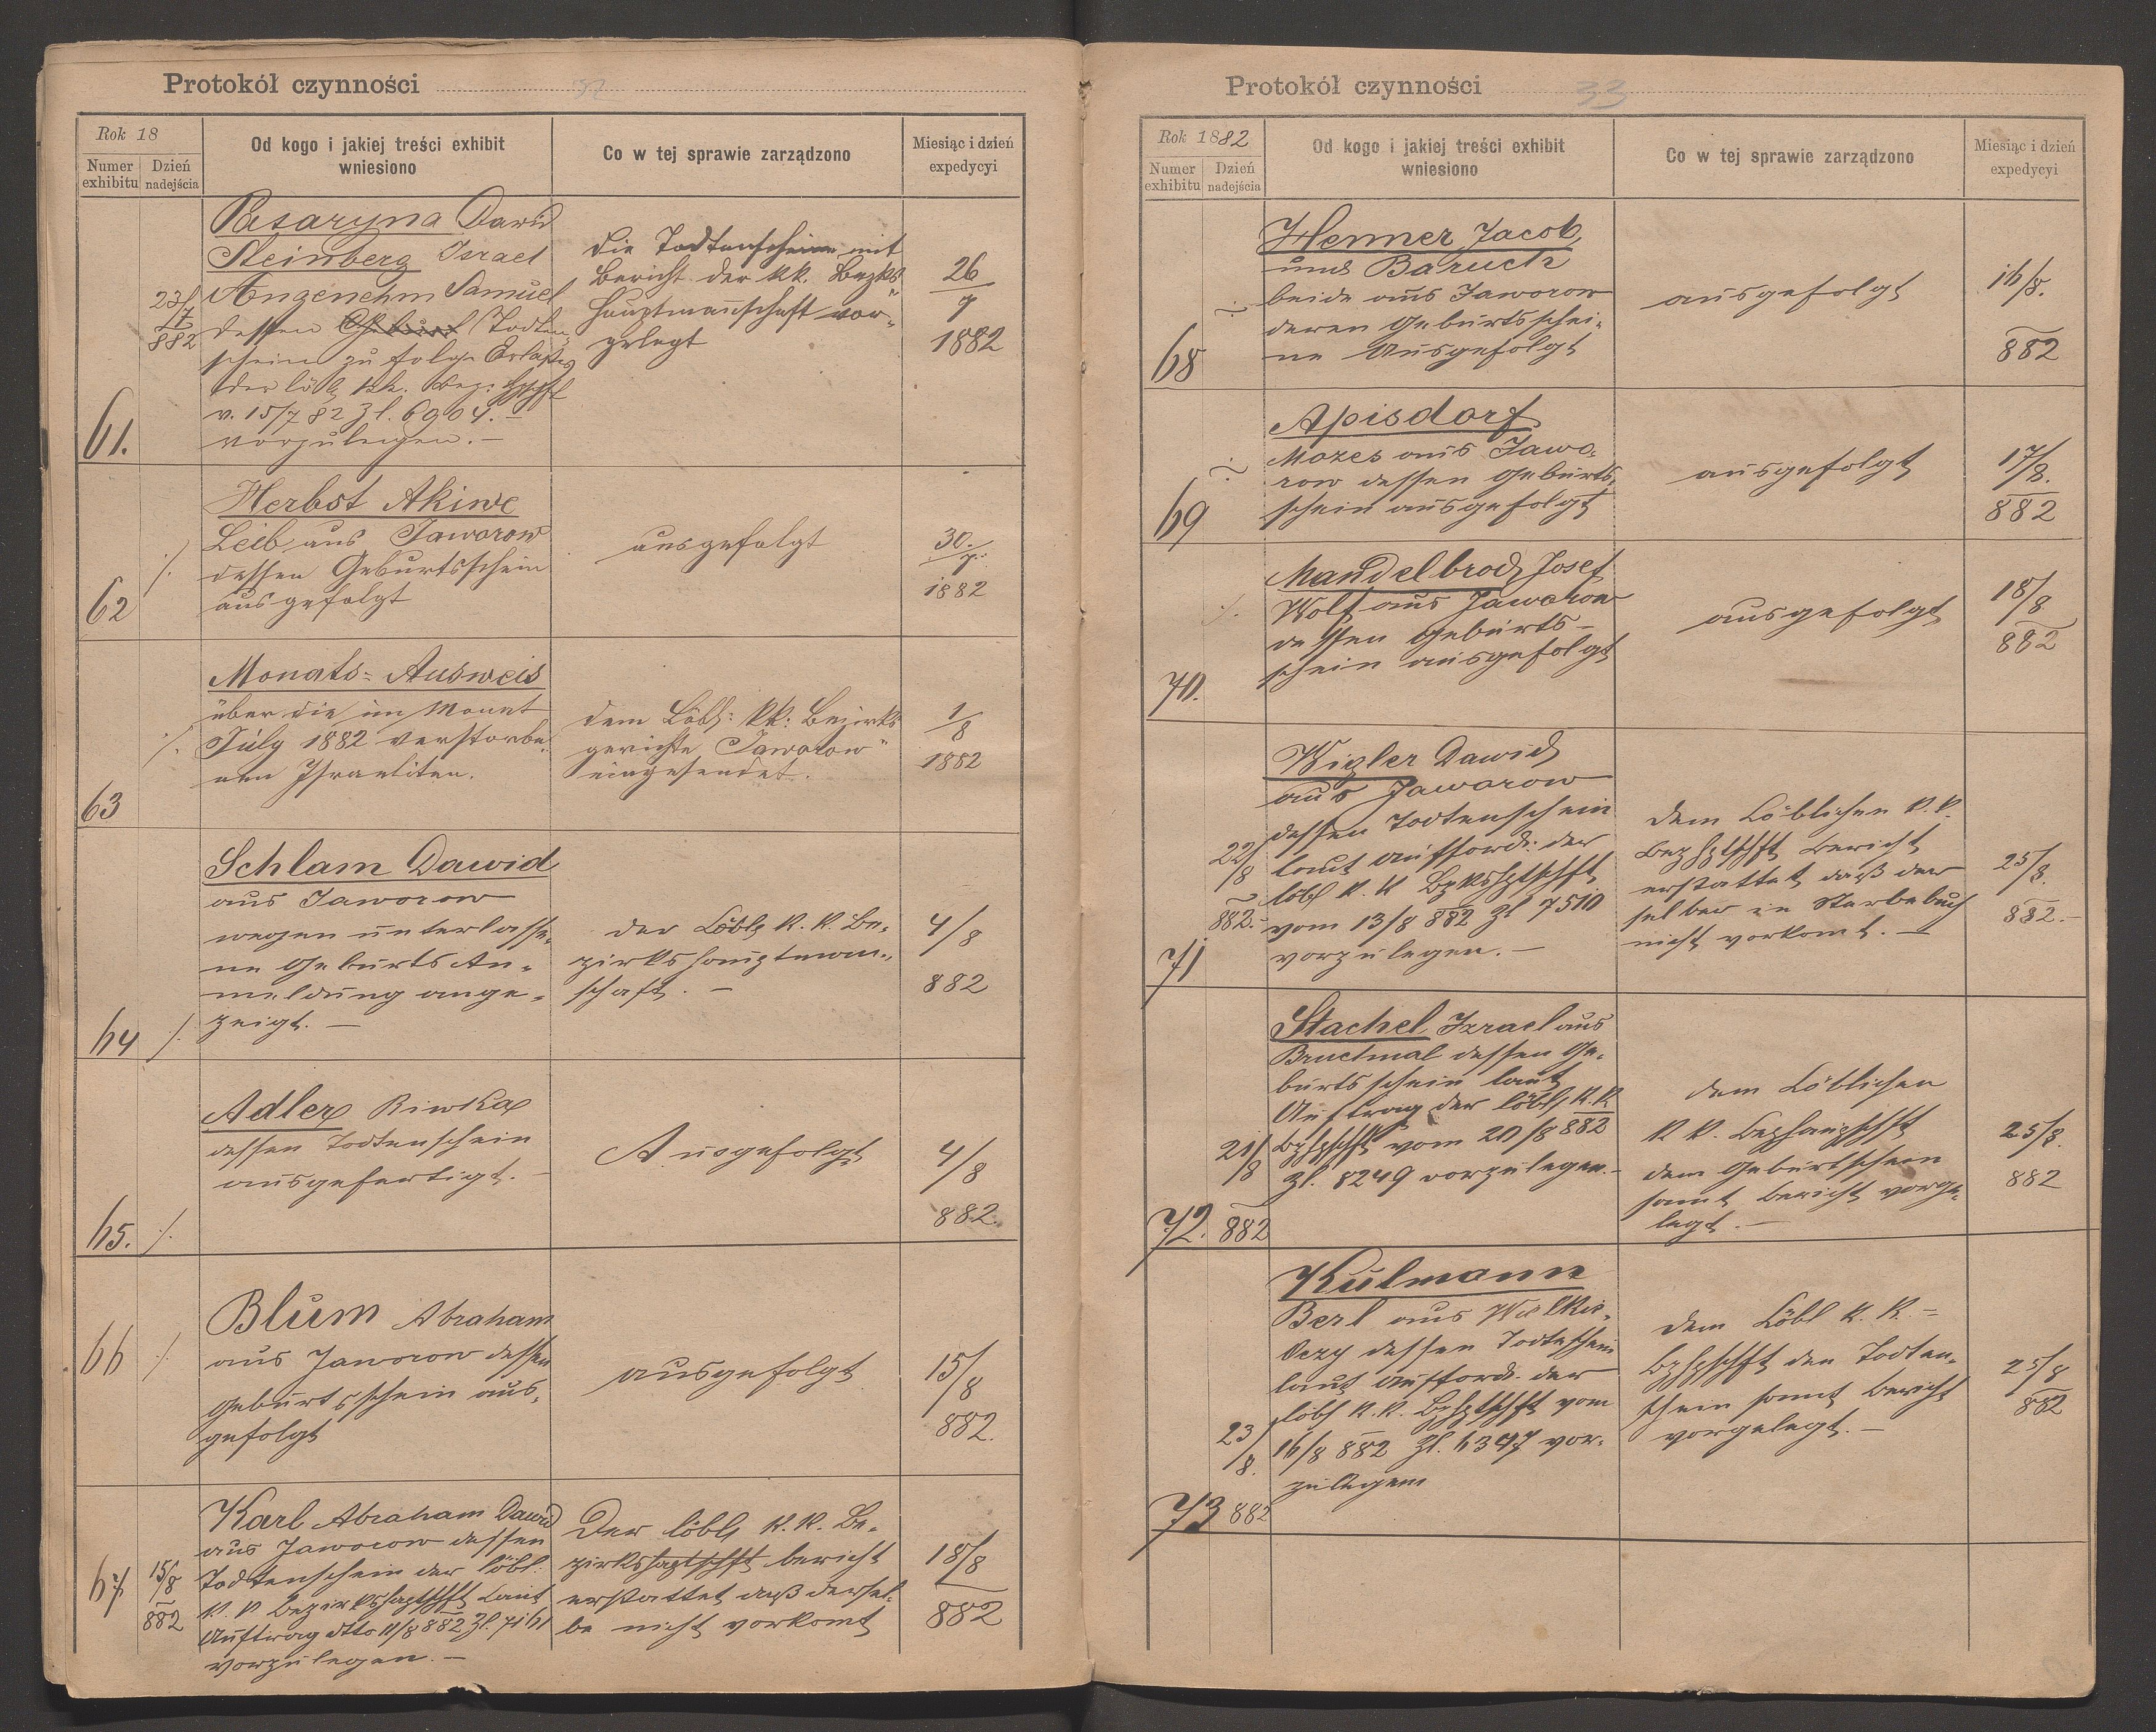 Protokół czynności
Rok 18
Numer exhibitu
Dzień nadejścia
Od kogo i jakiej treści exhibit wniesiono
Co w tej sprawie zarządzono
Miesiąc i dzień expedycyi
61.
23/7
882
Pasaryna Dawid
Steinberg Israel
Angenehm Samuel
dessen Todten
schein zu folge Erlasses
der löb kk. Bez.
v. 15/7 82 Zl. 6904.-
vorzulegen.-
die Todtenscheine mit
Bericht der kk. Bezks
Hauptmanschaft vor-
gelegt
26
7
1882
62
./.
Herbst Akiwe
Leib aus Jaworow
dessen Geburtsschein
ausgefolgt
ausgefolgt
30.
7.
1882
63
./.
Monats= Ausweis
über die im Monat
July 1882 verstorbe
nen Israeliten.
dem Löbl: kk: Bezirks
gerichte Jaworow
eingesendet.
1/8
1882
64
./.
Schlam Dawid
aus Jaworow
wegen unterlasse-
ne Geburts An-
meldung ange-
zeigt. -
der Löbl k. k. Be-
zirkshauptman-
schaft. -
4/8
882
65.
./.
Adler Riwka
dessen Todtenschein
ausgefertigt. -
Ausgefolgt
4/8
882.
66
./.
Blum Abraham
aus Jaworow dessen
Geburtsschein aus-
gefolgt
ausgefolgt
15/8
882.
67.
15/8
882
Karl Abraham Dawid
aus Jaworow dessen
Todtenschein der löbl.
k. k Bezirkshaptschft laut
Auftrag dtto 11/8 882 Zl. 7161
vorzulegen. -
Der löbl k. k. Be-
zirkshaptschft bericht
erstattet daß dersel-
be nicht vorkomt
18/8
882
Protokół czynności
33
Rok 1882
Numer exhibitu
Dzień nadejścia
Od kogo i jakiej treści exhibit wniesiono
Co w tej sprawie zarządzono
Miesiąc i dzień expedycyi
68
Henner Jacob
und Baruch
beide aus Jaworow
deren Geburtsschei-
ne Ausgefolgt
ausgefolgt
16/8.
882
69
Apisdorf
Mozes aus Jawo-
row dessen Geburts-
schein ausgefolgt
ausgefolgt
17/8.
882
70.
./.
Mandelbrod Josef
Wolf aus Jaworow
dessen Geburts-
schein ausgefolgt
ausgefolgt
18/8
882
71
22/8
882.
Wigler Dawid
aus Jaworow
dessen Todtenschein
laut aufford. der
löbl k. k Bzkshptschft
vom 13/8 882 Zl 7510
vorzulegen. -
dem Löblichen k. k.
Bezhptschft Bericht
erstattet daß der
selber in Sterbebuch
nicht vorkomt. -
25/8.
882.-
72.
21/8
882
Stachel Izrael aus
Bruchnal dessen Ge-
burtsschein laut
Auftrag der löbl k. k
Bzhptschft vom 20/8 882
Zl. 8249 vorzulegen.-
dem Löblichen
k k. Bezhauptschft
dem Geburtschein
samt Bericht vorge-
legt. -
25/8.
882
73
23/8.
882
Kulmann
Berl aus Wielkie-
Oczy dessen Todteschein
laut aufford. der
löbl k. k. Bzhptschft vom
16/8 882 Zl. 6347 vor-
zulegen
dem Löbl k. k. =
Bzhptschft den Todten-
schein samt Bericht
vorgelegt. -
25/8
882